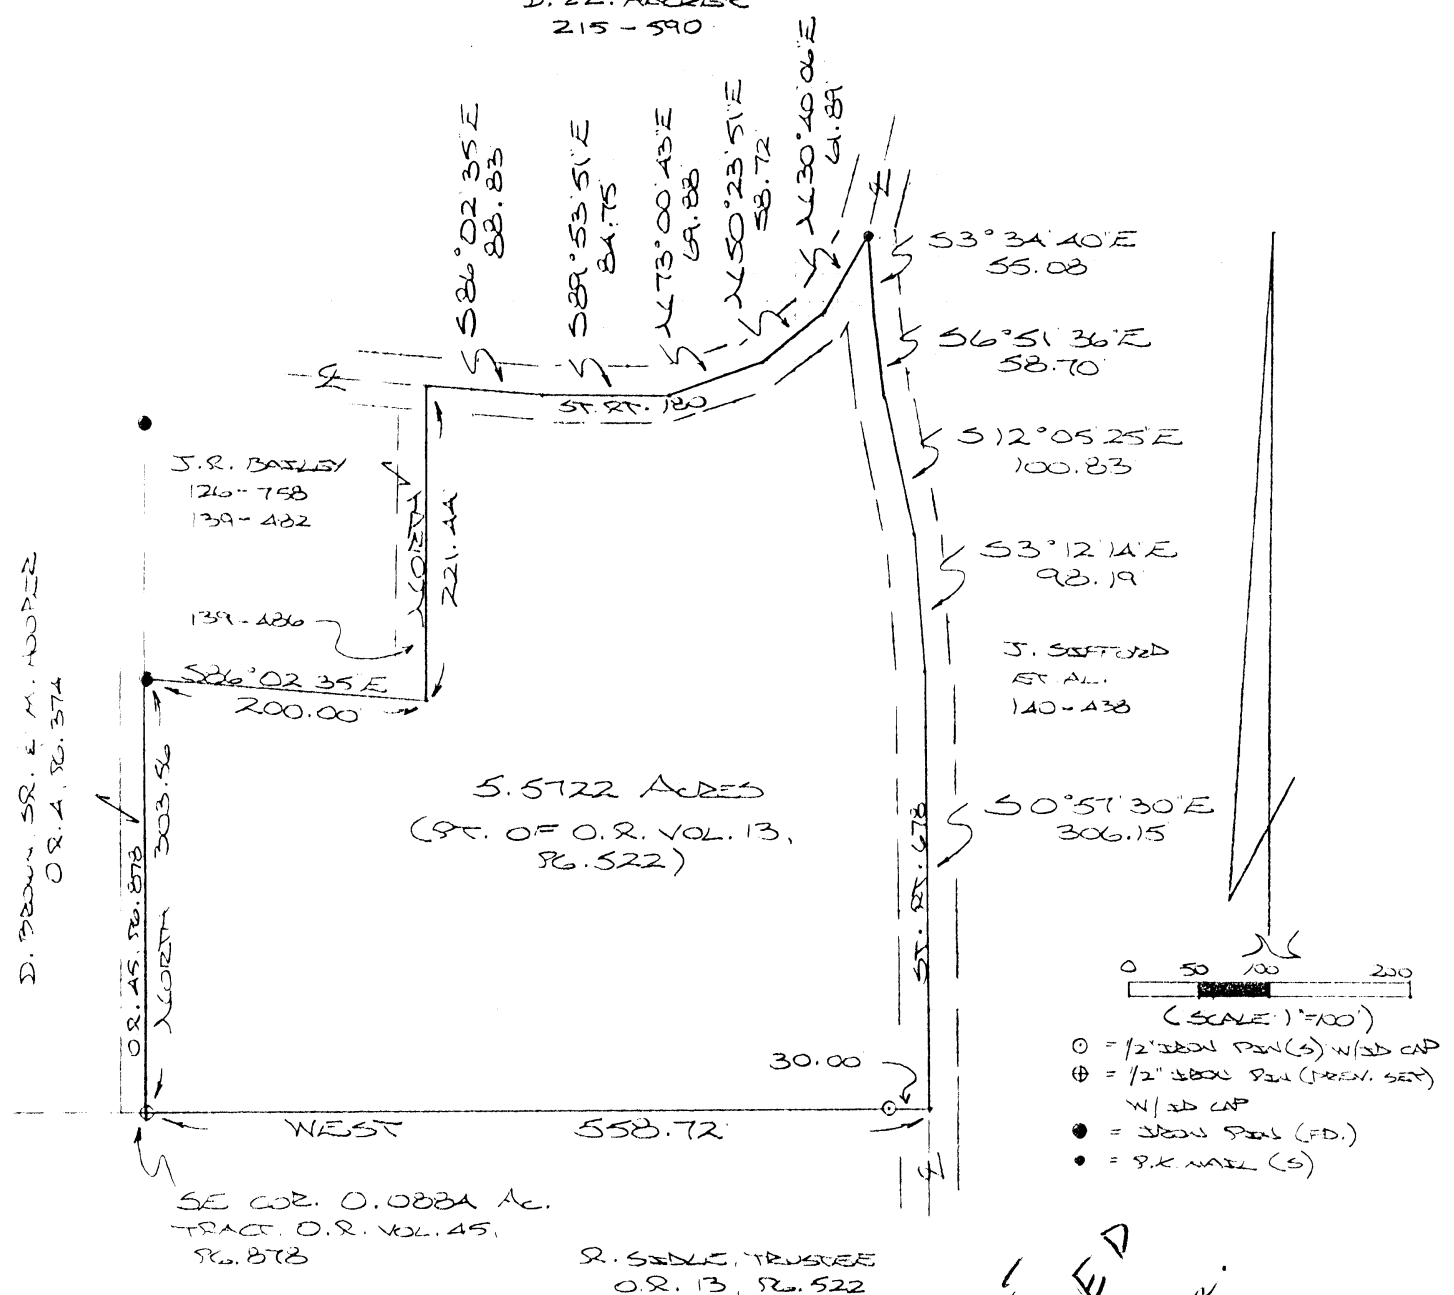 215-590
S86°02'35"E
88.83
S89°53'51"E
84.75
N73°00'43"E
69.88
N50°23'51"E
58.72
N30°40'06"E
61.89
S3°34'40"E
55.08
S6°51'36"E
58.70'
S12°05'25"E
100.83'
S3°12'14"E
98.19'
S0°57'30"E
306.15
ST. RT. 180
J.R. BAILEY
126-758
139-482
NORTH
221.44
139-486
S86°02'35"E
200.00'
D. BROWN SR. & M. HOOPER
O.R. 4, PG. 374
O.R. 45, PG. 878
NORTH 303.56
5.5722 ACRES
(PT. OF O.R. VOL. 13,
PG. 522)
J. SIFFORD
ET AL.
140-438
ST. RT. 678
30.00
WEST 558.72'
SE COR. 0.0884 AC.
TRACT. O.R. VOL. 45,
PG. 878
R. SIDLE, TRUSTEE
O.R. 13, PG. 522
N
0 50 100 200
(SCALE 1"=100')
= 1/2" IRON PIN(S) W/ID CAP
= 1/2" IRON PIN (PREV. SET)
W/ ID CAP
= IRON PIN (FD.)
= P.K. NAIL (S)